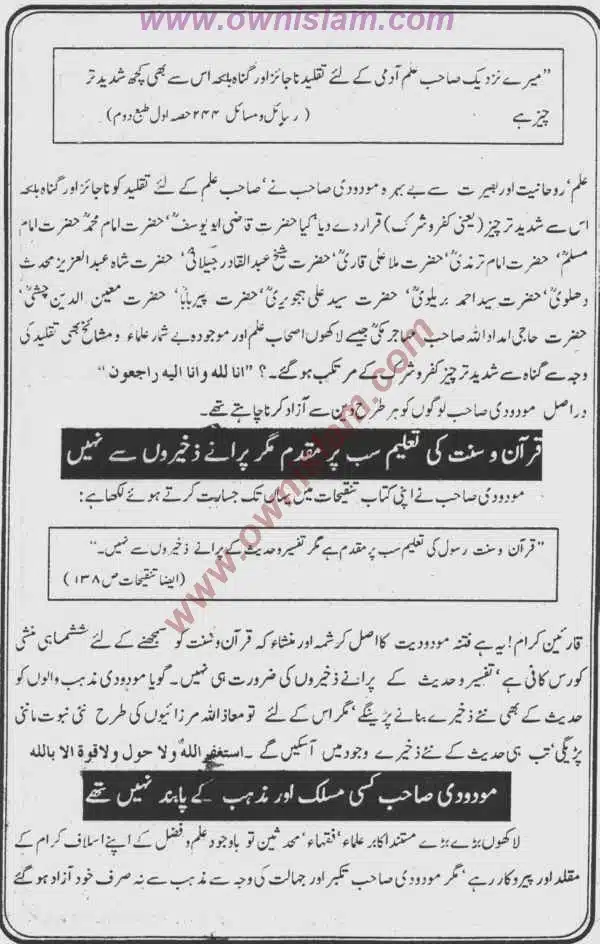 www.ownislam.com
”میرے نزدیک صاحب علم آدمی کے لئے تقلید ناجائز اور گناہ بلکہ اس سے بھی کچھ شدید تر
چیز ہے (رسائل و مسائل ۲۴۴ حصہ اول طبع دوم)
علم‘ روحانیت اور بصیرت سے بے بہرہ مودودی صاحب نے‘ صاحب علم کے لئے تقلید کو ناجائز اور گناہ بلکہ
اس سے شدید تر چیز (یعنی کفر و شرک) قرار دے دیا‘ کیا حضرت قاضی ابو یوسفؒ‘ حضرت امام محمدؒ حضرت امام
مسلمؒ‘ حضرت امام ترمذیؒ‘ حضرت ملا علی قاریؒ‘ حضرت شیخ عبدالقادر جیلانیؒ‘ حضرت شاہ عبدالعزیز محدث
دھلویؒ‘ حضرت سید احمد بریلویؒ‘ حضرت سید علی ہجویریؒ‘ حضرت پیر باباؒ‘ حضرت معین الدین چشتیؒ‘
حضرت حاجی امداد اللہ صاحب مہاجر مکیؒ جیسے لاکھوں اصحاب علم اور موجودہ بے شمار علماء و مشائخ بھی تقلید کی
وجہ سے گناہ سے شدید تر چیز کفر و شرک کے مرتکب ہو گئے۔؟ ”انا لله وانا اليه راجعون“
دراصل مودودی صاحب لوگوں کو ہر طرح دین سے آزاد کرنا چاہتے تھے۔
قرآن و سنت کی تعلیم سب پر مقدم مگر پرانے ذخیروں سے نہیں
مودودی صاحب نے اپنی کتاب تنقیحات میں یہاں تک جسارت کرتے ہوئے لکھا ہے:
”قرآن و سنت رسول کی تعلیم سب پر مقدم ہے مگر تفسیر و حدیث کے پرانے ذخیروں سے نہیں۔“
(ایضا تنقیحات ص ۱۳۸)
قارئین کرام! یہ ہے فتنہ مودودیت کا اصل کرشمہ اور منشاء کہ قرآن و سنت کو سمجھنے کے لئے ششماہی منشی
کورس کافی ہے‘ تفسیر و حدیث کے پرانے ذخیروں کی ضرورت ہی نہیں۔ گویا مودودی مذہب والوں کو
حدیث کے بھی نئے ذخیرے بنانے پڑینگے‘ مگر اس کے لئے تو معاذ اللہ مرزائیوں کی طرح نئی نبوت ماننی
پڑیگی‘ تب ہی حدیث کے نئے ذخیرے وجود میں آسکیں گے۔ استغفر الله ولا حول ولا قوة الا بالله
مودودی صاحب کسی مسلک اور مذہب کے پابند نہیں تھے
لاکھوں بڑے بڑے مستند اکابر علماء‘ فقہاء‘ محدثین تو باوجود علم و فضل کے اپنے اسلاف کرام کے
مقلد اور پیروکار رہے‘ مگر مودودی صاحب تکبر اور جہالت کی وجہ سے مذہب سے نہ صرف خود آزاد ہو گئے
www.ownislam.com